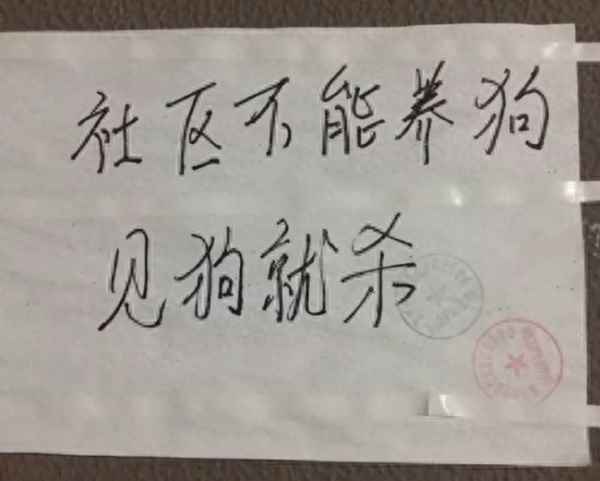 社区不能养狗
见狗就杀